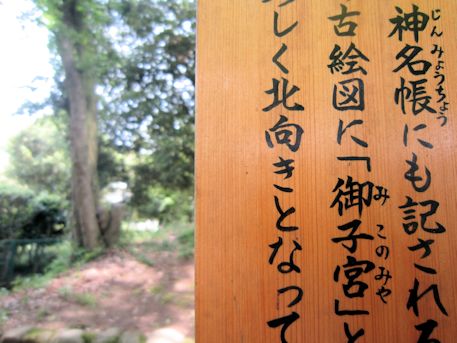 神名帳にも記される
古絵図に「御子宮」と
しく北向きとなって
じんみょうちょう
みこのみや